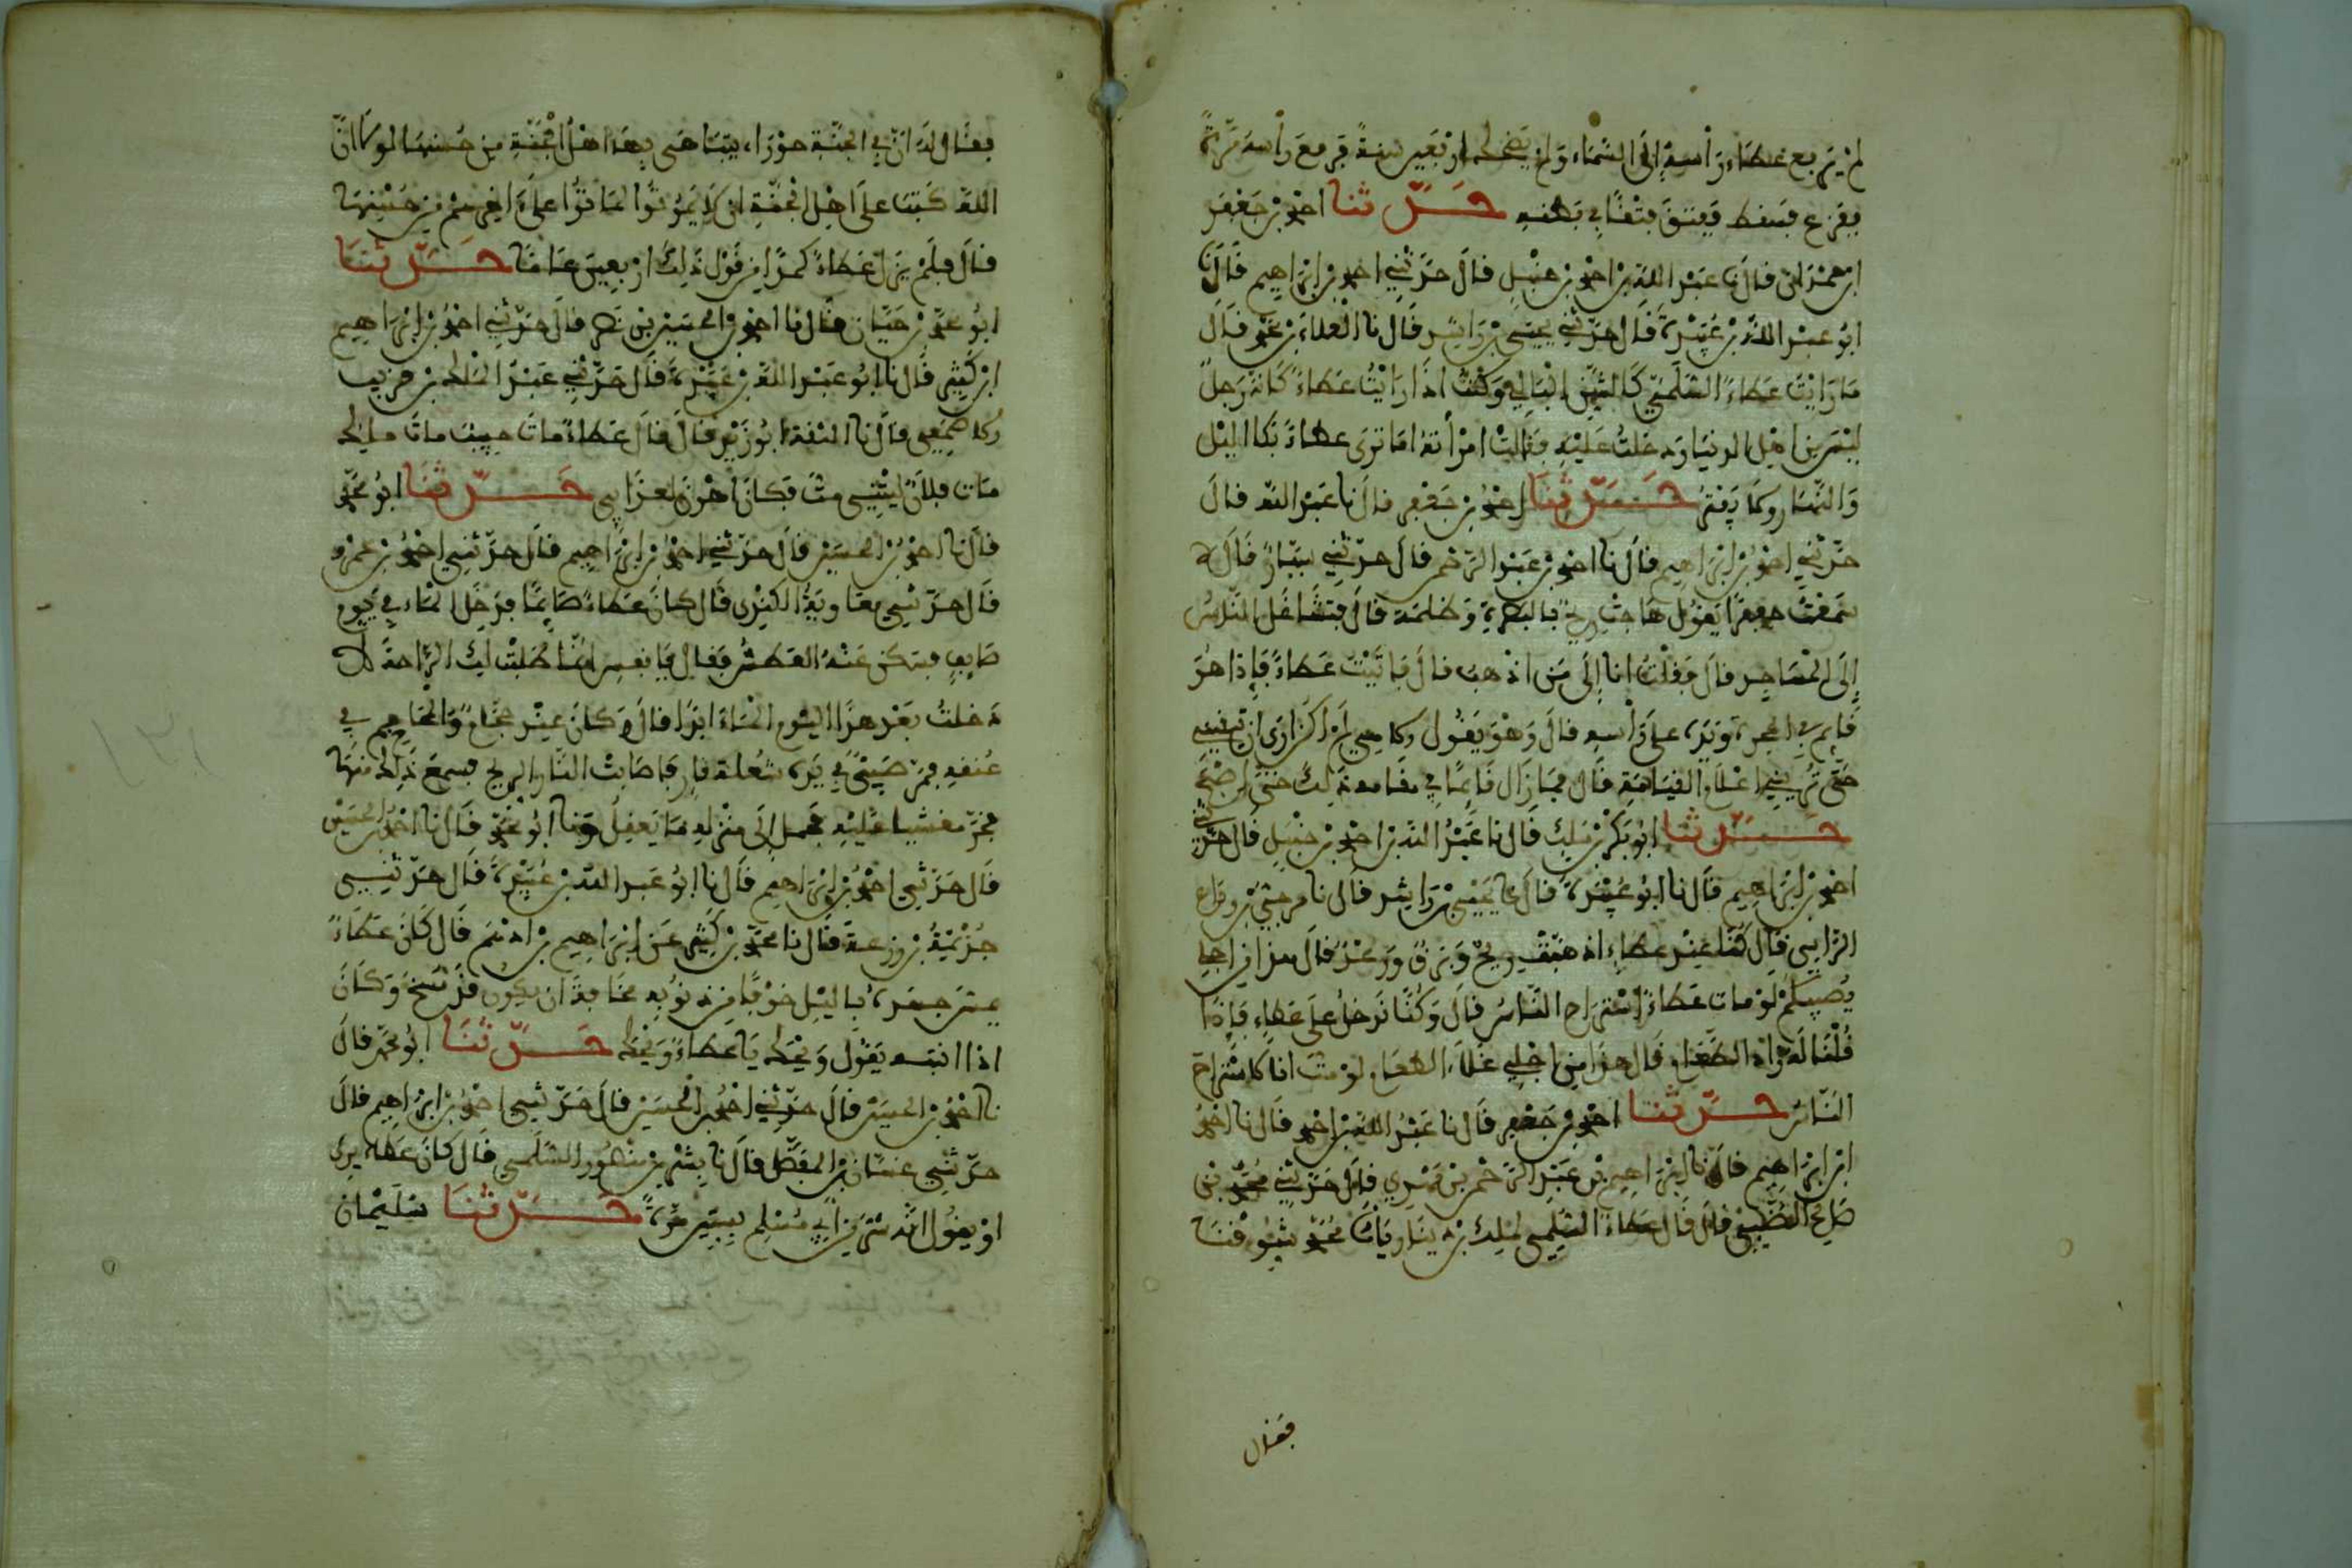 لم يرفع عطاء رأسه إلى السماء ولم يضحك أربعين سنة فرفع رأسه مرة
ففزع فسقط ففتق فتقا في بطنه حدثنا احمد بن جعفر
ابن حمدان قال نا عبد الله بن احمد بن حنبل قال حدثني احمد بن ابراهيم قال نا
ابو عبد الله بن عبيدة قال حدثني يحيى بن راشد قال نا العلاء بن محمد قال
ما رايت عطاء السلمي كالشن البالي وكنت اذا رايت عطاء كانه رجل
ليس من اهل الدنيا ودخلت عليه فقالت امرأته اما ترى عطاء بكا الليل
والنهار وكا يفتر حدثنا احمد بن جعفر قال نا عبد الله قال
حدثني احمد بن ابراهيم قال نا احمد بن عبد الرحمن قال حدثني سيار قال
سمعت جعفرا يقول هاجت ريح بالبصرة وظلمة قال فتشاغل الناس
إلى المساجد قال فقلت انا إلى من اذهب قال فاتيت عطاء فإذا هو
قايم في الحجرة ويده على رأسه قال وهو يقول
حتى تريني اعلام القيامة قال فما زال قايما في مقامه ذلك حتى اصبح
حدثنا ابو بكر بن ملك قال نا عبد الله بن احمد بن حنبل قال حدثني
احمد بن ابراهيم قال نا ابو عبيدة قال نا يحيى بن راشد قال نا مرجى بن وداع
الراسبي قال كنا عند عطاء اذ هبت ريح وبرق ورعد قال هذا من اجلي
يصيبكم لو مات عطاء استراح الناس قال وكنا ندخل على عطاء فإذا
قلنا له زاد الطعام قال هذا من اجلي غلاء الطعام لو مت انا كاستراح
الناس حدثنا احمد بن جعفر قال نا عبد الله بن احمد قال نا احمد
ابن ابراهيم قال نا ابراهيم بن عبد الرحمن بن مهدي قال حدثني محمد بن
صالح الضبي قال قال عطاء السليمي لملك بن دينار يا ابا شوقنا
فقال
فقال له ان في الجنة حوراء يتباهى بها اهل الجنة من حسنها لوكا ان
الله كتب على اهل الجنة ان كا يموتوا لماتوا على اخرهم من حسنها
قال فلم يزل عطاء كمدا من قول ذلك اربعين عاما حدثنا
ابو محمد بن حيان قال نا احمد بن الحسين بن نصر قال حدثني احمد بن ابراهيم
ابن كثير قال نا ابو عبد الله بن عبيدة قال حدثني عبد الملك بن قريب
وكا صمعي قال نا الثقة ابو زيد قال قال عطاء مات حبيب مات ملك
مات فلان ليتني مت فكان اهون لعذابي حدثنا ابو محمد
قال نا احمد بن الحسين قال حدثني احمد بن ابراهيم قال حدثني احمد بن عمرو
قال حدثني معاوية الكندي قال كان عطاء صايما فدخل الماء في يوم
صايف فسكن عنه العطش فقال يا نفس انما طلبت لك الراحة لا
دخلت بعد هذا اليوم الماء ابدا قال وكان عند حجام والمحاجم في
عنقه فمر صبي في يده شعلة نار فاصابت النار الريح فسمع ذلك منها
فخر مغشيا عليه فحمل إلى منزله ما يعقل ونا ابو محمد قال نا احمد بن الحسين
قال حدثني احمد بن ابراهيم قال نا ابو عبد الله بن عبيدة قال حدثني
خزيمة بن زرعة قال نا محمد بن كثير عن ابراهيم بن ادهم قال كان عطاء
يمس جسده بالليل خوفا من ذنوبه مخافة ان يكون قد مسخ وكان
اذا انتبه يقول ويحك يا عطاء ويحك حدثنا ابو محمد قال
نا احمد بن الحسين قال حدثني احمد بن الحسين قال حدثني احمد بن ابراهيم قال
حدثني غسان بن المفضل قال نا بشر بن منصور السلمي قال كان عطاء يرى
او يقول انه شر من ابي مسلم بستين مرة حدثنا سليمان